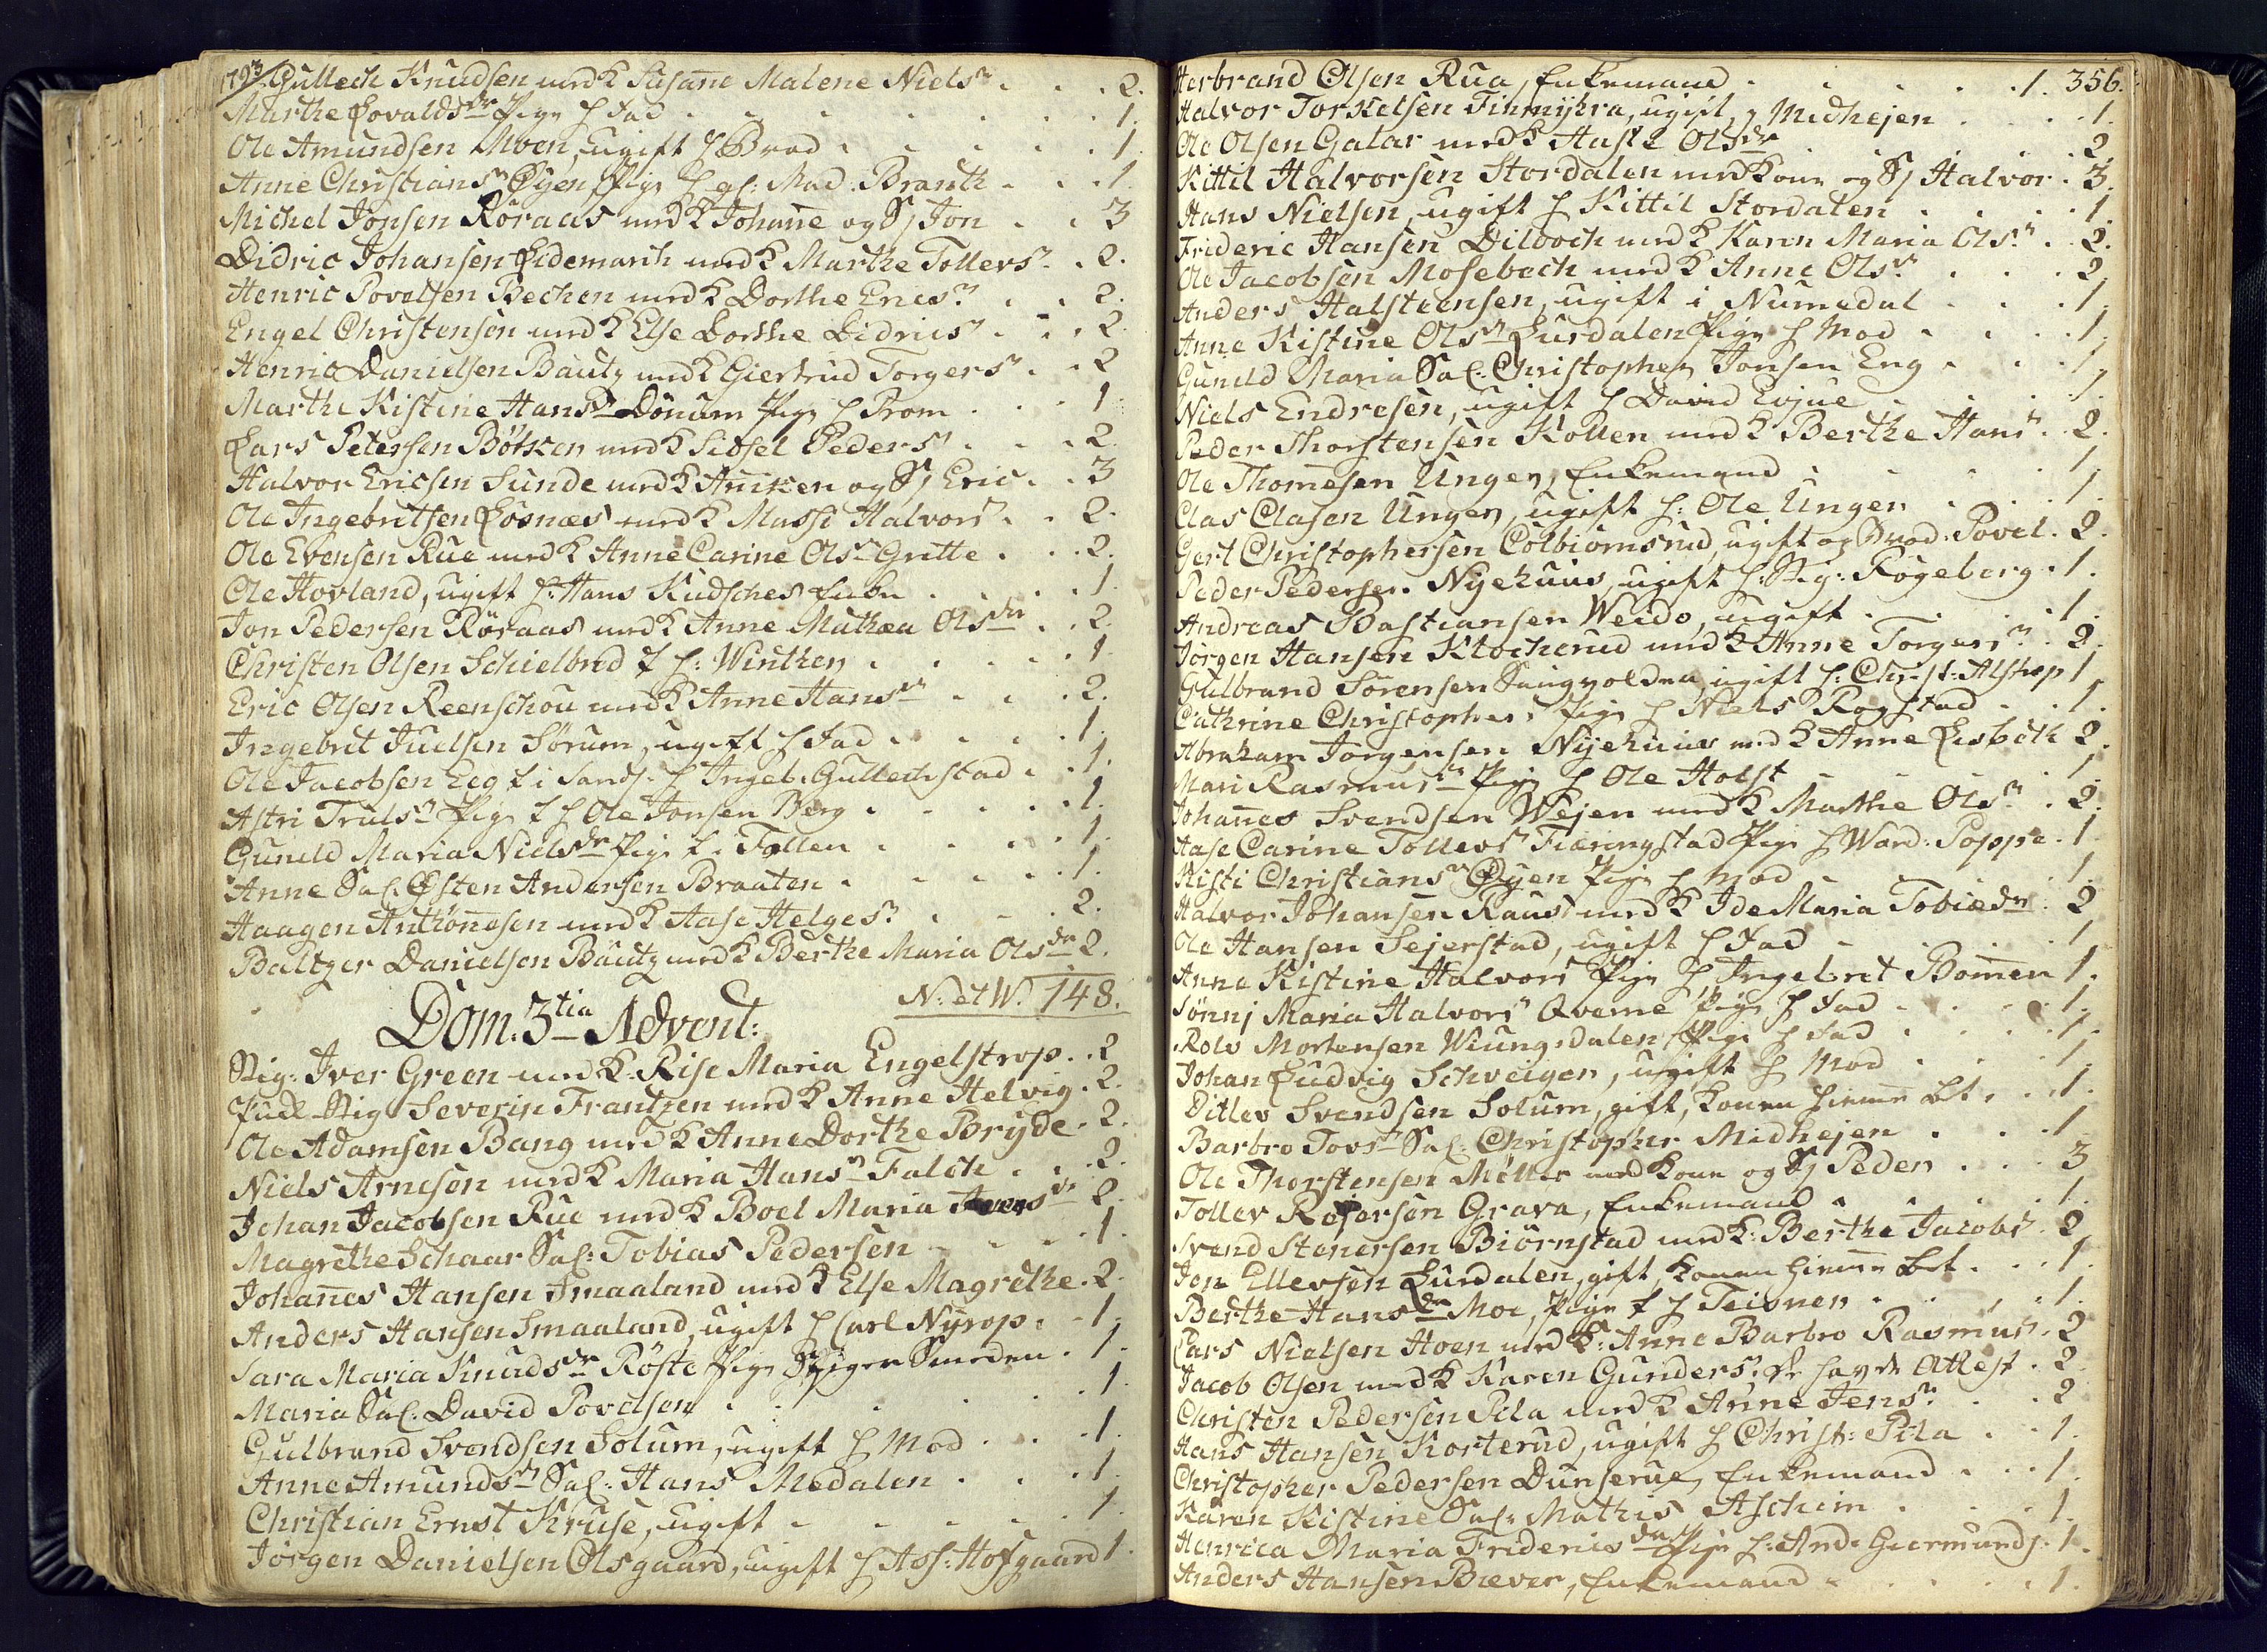 1793 Gullech Knudsen med K Susane Malene Niels.n . . 2.
Marthe Lovaldsdr Pige h Fad . . . . . . 1.
Ole Amundsen Moen, ugift h Brod . . . . 1.
Anne Christians.n Øyen Pige h gl: Mad. Branth . . 1.
Michel Jonsen Röraas med K Johane og S Jon . . 3
Didric Johansen Lidemarch med K Marthe Tollers.n . 2.
Henric Povelsen Bechen med K Dorthe Erics.n . . 2.
Engel Christensen med K Else Dorthe Didrics.n . . 2.
Henric Danielsen Bautz med K Giertrud Torgers.n . . 2
Marthe Kistine Hans.n Dönum Pige h Prom . . . 1.
Lars Petersen Bötker med K Sidsel Peders.n . . . 2.
Halvor Ericsen Sunde med K Aniken og S Eric . . 3
Ole Ingebritsen Losnæs med K Massi Halvors.n . . 2.
Ole Evensen Rue med K Anne Carine Ols.n Gritte . . . 2.
Ole Hovland, ugift h: Hans Kudsches Enke . . . . 1.
Jon Pedersen Röraas med K Anne Mathea Olsdr . . 2.
Christen Olsen Schielbred f h: Winther . . . . . 1.
Eric Olsen Reenschou med K Anne Hans.n . . . 2.
Ingebret Juelsen Sørum, ugift h Fad . . . . . 1.
Ole Jacobsen Eeg f i Sands. h Ingeb. Gullechstad . . 1.
Astri Truls.n Pige f h Ole Jonsen Berg . . . . . 1.
Guneld Maria Nielsdr Pige f. Follen . . . . . 1.
Anne Sal. Østen Andersen Braaten . . . . . 1.
Haagen Anthonesen med K Aase Helges.n . . . 2.
Baltzer Danielsen Bautz med K Berthe Maria Olsdr 2.
N: et W. 148.
Dom: 3tia Advent:
Sig: Iver Green med K Rise Maria Engelstrop . . 2
Sig Severin Frantzen med K Anne Helvig . 2.
Ole Adamsen Bang med K Anne Dorthe Bryde . 2.
Niels Arnesen med K Maria Hans.n Falch . . . 2.
Johan Jacobsen Rue med K Boel Maria 2.
Magrethe Schaar Sal: Tobias Pedersen . . . . 1.
Johanes Hansen Smaaland med K Else Magrethe . 2.
Anders Hansen Smaaland, ugift h Carl Nyrop . . 1.
Sara Maria Knudsdr Röste Pige Smeden . 1.
Maria Sal. David Povelsen . . . . . 1.
Gulbrand Svendsen Solum, ugift h Mod . . . 1.
Anne Amunds.n Sal: Hans Medalen . . . . 1.
Christian Ernst Kruse, ugift . . . . . . 1.
Jörgen Danielsen Olsgaard, ugift h Ass: Hofgaard 1.
Herbrand Olsen Rua, Enkemand . . . . . 1. 356.
Halvor Torkelsen Finmyhra, ugift, Midhejen . . . 1.
Ole Olsen Galar med K Aaste Olsdr . . . . 2.
Kittil Halvorsen Stordalen med Kone og S Halvor . 3.
Hans Nielsen, ugift h Kittil Stordalen . . . . 1.
Frideric Hansen Dilboch med K Karen Maria Ols.n . 2.
Ole Jacobsen Mosebech med K Anne Ols.n . . . 2.
Anders Halsteensen, ugift i Numedal . . . 1.
Anne Kistine Ols.n Lurdalen Pige h Mod . . . . 1.
Guneld Maria Sal. Christopher Jonsen Eng . . . 1.
Niels Endresen, ugift h David Evjue . . . . 1.
Peder Thorstensen Kollen med K Berthe Hans.n . 2.
Ole Thomesen Unger, Enkemand . . . . . 1.
Clas Clasen Unger, ugift h: Ole Unger . . . . 1.
Gert Christophersen Colbiornsrud, ugift og Brod. Povel . 2.
Peder Pedersen Nyehuus, ugift h: Sig: Rogeberg . 1.
Andreas Bastiansen Weido, ugift . . . . 1.
Jörgen Hansen Klocherud med K Anne Torgers.n . 2.
Gulbrand Sörensen Saugvolden, ugift h: Christ: Alstrop 1.
Cathrine Christophers Pige h Niels Rogstad . . 1.
Abraham Jorgensen Nyehuus med K Anne Lisbeth 2.
Mari Rasmus.n Pige h Ole Holst . . . . . 1.
Johanes Svendsen Wejen med K Marthe Ols.n . 2.
Aase Carine Tollers.n Fiæringstad Pige h Ward: Poppe . 1.
Kisti Christians.n Øyen Pige h Mod . . . . 1.
Halvor Johansen Raus med K Ide Maria Tobiædr . 2
Ole Hansen Sejerstad, ugift h Fad . . . . . 1.
Anne Kistine Halvors.n Pige h Ingebret Bomen 1.
Sönnj Maria Halvors.n Qverne Pige h Fad . . . 1.
Rolv Mortensen Wiungsdalen Pige h Fad . . . . 1.
Johan Ludvig Schveiger, ugift h Mod . . . . 1.
Ditlev Svendsen Solum, gift, Konen hieme bet. . . 1.
Barbro Tovs.n Sal. Christopher Midhejen . . . 1.
Ole Thorstensen Möller med Kone og S Peder . . . 3
Tollev Rejersen Grava, Enkemand . . . . 1.
Svend Stenersen Biörnstad med K: Berthe Jacobs.n 2
Jon Ellevsen Lurdalen, gift, Konen hieme bet . . . 1.
Berthe Hansdr Moe, Pige f h Teisner . . . . . 1.
Lars Nielsen Hoen med K: Anne Barbro Rasmus.n . 2
Jacob Olsen med K Karen Gunders.n Attest . 2
Christen Pedersen Pila med K Anne Jens.n . . 2
Hans Hansen Korterud, ugift h Christ: Pila . . 1.
Christopher Pedersen Dunserue, Enkemand . . . 1.
Karen Kistine Sal: Mathis Aschim . . . . 1.
Henrica Maria Fridericsdr Pige h: And: Giermunds. 1.
Anders Hansen Bæver, Enkemand . . . . . 1.